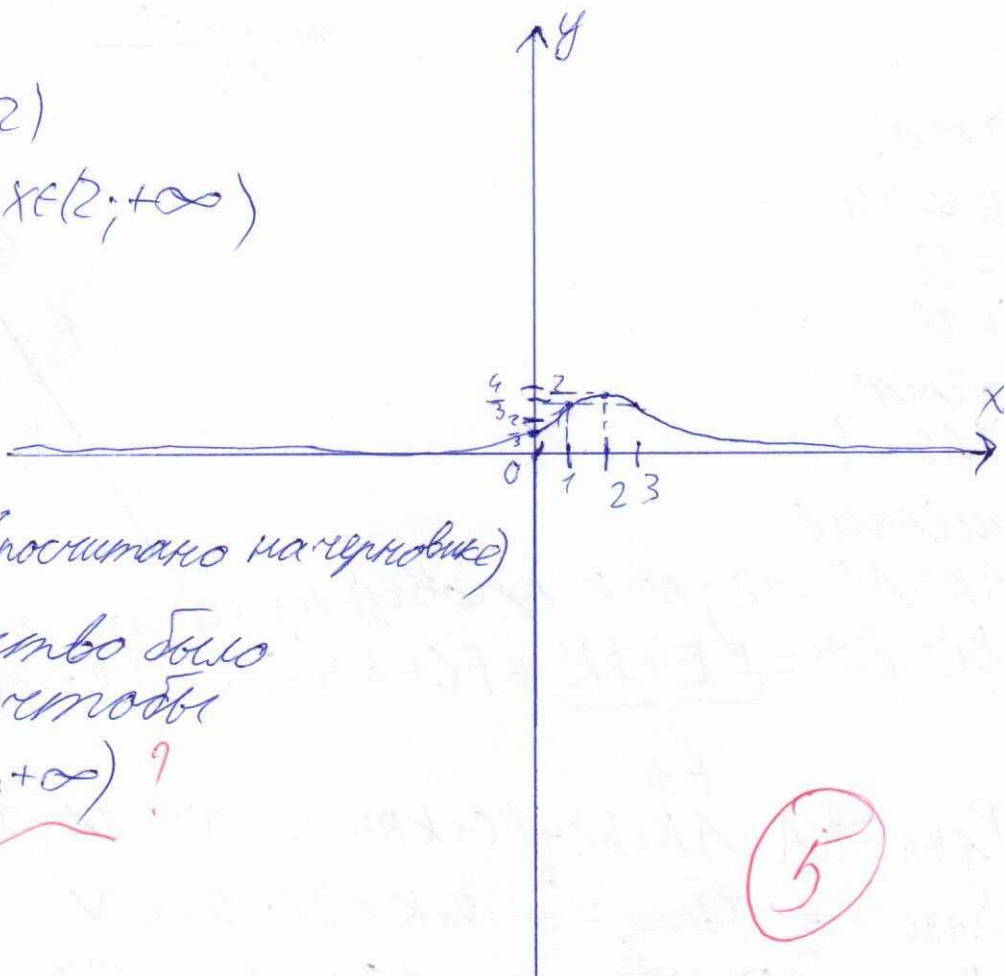 y
2)
x∈(2;+∞)
4/3 2
2/3
x
0 1 2 3
посчитано на черновике)
ство было
чтобы
+∞) ?
5